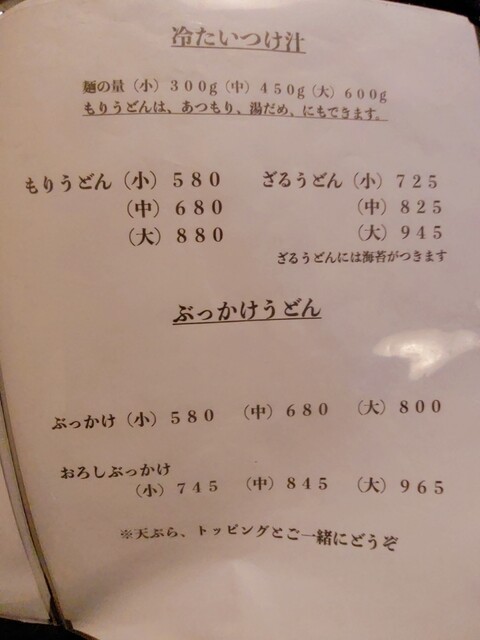 冷たいつけ汁
麺の量（小）３００g（中）４５０g（大）６００g
もりうどんは、あつもり、湯だめ、にもできます。
もりうどん（小）５８０
（中）６８０
（大）８８０
ざるうどん（小）７２５
（中）８２５
（大）９４５
ざるうどんには海苔がつきます
ぶっかけうどん
ぶっかけ（小）５８０ （中）６８０ （大）８００
おろしぶっかけ
（小）７４５ （中）８４５ （大）９６５
※天ぷら、トッピングとご一緒にどうぞ